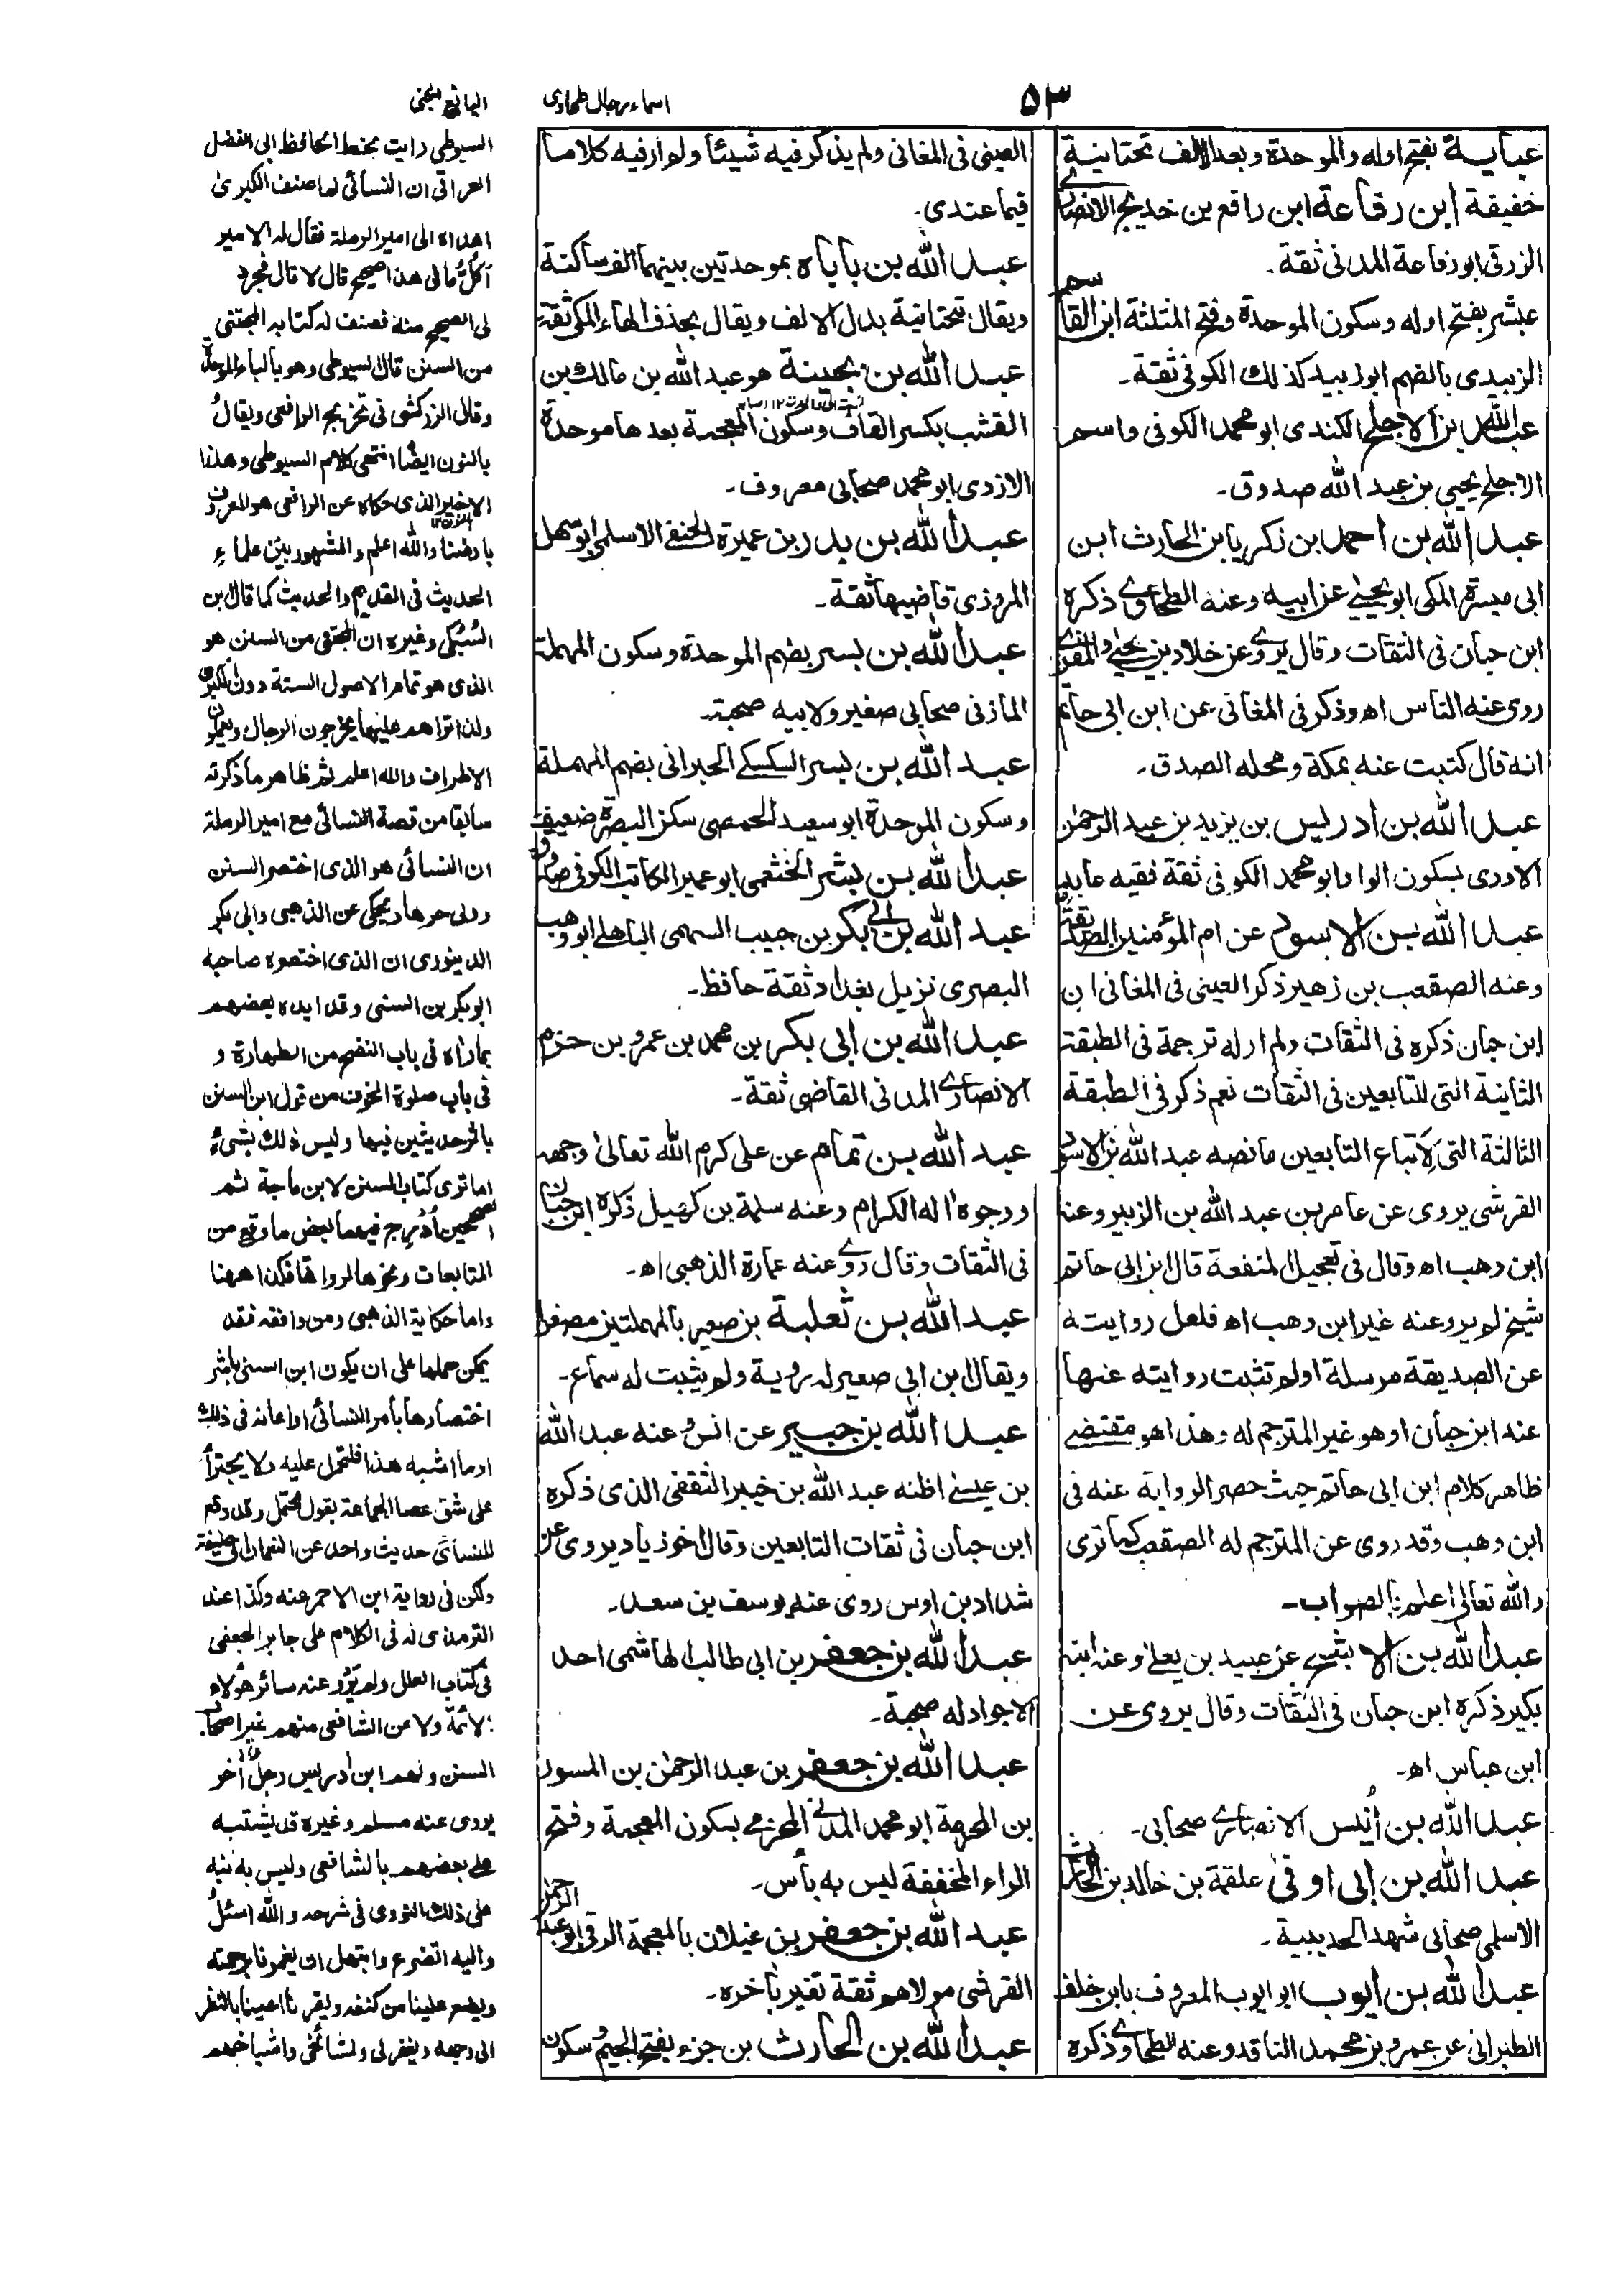 ۵۳
اسماء رجال طحاوی
اليانع الجنی
عباية بفتح اوله والموحدة وبعد الالف تحتانية
خفيفة ابن رفاعة ابن رافع بن خديج الانصاری
الزرقی ابو رفاعة المدنی ثقة۔
عبثر بفتح اوله وسكون الموحدة وفتح المثلثة ابن القاسم
الزبيدی بالضم ابو زبيد كذلك الكوفی ثقة۔
عبد الله بن الاجلح الكندی ابو محمد الكوفی واسم
الاجلح يحيی بن عبد الله صدوق۔
عبد الله بن احمد بن زكريا بن الحارث ابن
ابی ميسرة المكی ابو يحيی عن ابيه وعنه الطحاوی ذكره
ابن حبان فی الثقات وقال يروی عن خلاد بن يحيی والمقری
روی عنه الناس اه وذكر فی المغانی عن ابن ابی حاتم
انه قال كتبت عنه بمكة ومحله الصدق۔
عبد الله بن ادريس بن يزيد بن عبد الرحمٰن
الاودی بسكون الواو ابو محمد الكوفی ثقة فقيه عابد
عبد الله بن الاسود عن ام المؤمنين الصديقة
وعنه الصقعب بن زهير ذكر العينی فی المغانی ان
ابن حبان ذكره فی الثقات ولم ار له ترجمة فی الطبقة
الثانية التی للتابعين فی الثقات نعم ذكر فی الطبقة
الثالثة التی لاتباع التابعين ما نصه عبد الله بن الاسود
القرشی يروی عن عامر بن عبد الله بن الزبير وعنه
ابن وهب اه وقال فی تعجيل المنفعة قال ابن ابی حاتم
شيخ لم يرو عنه غير ابن وهب اه فلعل روايته
عن الصديقة مرسلة او لم تثبت روايته عنها
عند ابن حبان او هو غير المترجم له وهذا هو مقتضی
ظاهر كلام ابن ابی حاتم حيث حصر الرواية عنه فی
ابن وهب وقد روی عن المترجم له الصقعب كما تری
والله تعالی اعلم بالصواب۔
عبد الله بن الاشج عن عبيد بن يعلی وعنه ابنه
بكير ذكره ابن حبان فی الثقات وقال يروی عن
ابن عباس اه۔
عبد الله بن اُنيس الانصاری صحابی۔
عبد الله بن ابی اوفی علقمة بن خالد بن الحارث
الاسلمی صحابی شهد الحديبية۔
عبد الله بن ايوب ابو ايوب المعروف بابن خلف
الطبرانی عن عمرو بن محمد الناقد وعنه الطحاوی ذكره
العينی فی المغانی ولم يذكر فيه شيئا ولم ار فيه كلاما
فيما عندی۔
عبد الله بن باباه بموحدتين بينهما الف ساكنة
ويقال تحتانية بدل الالف ويقال بحذف الهاء المكی ثقة
عبد الله بن بحينة هو عبد الله بن مالك بن
القشب بكسر القاف وسكون المعجمة بعدها موحدة
الازدی ابو محمد صحابی معروف۔
عبد الله بن بدر بن عميرة الحنفی الاسلمی ابو سهل
المروزی قاضيها ثقة۔
عبد الله بن بسر بضم الموحدة وسكون المهملة
المازنی صحابی صغير ولابيه صحبة۔
عبد الله بن بسر السكسكی الحبرانی بضم المهملة
وسكون الموحدة ابو سعيد الحمصی سكن البصرة ضعيف
عبد الله بن بشر الخثعمی ابو عمير الكاتب الكوفی صدوق
عبد الله بن ابی بكر بن حبيب السهمی الباهلی ابو وهب
البصری نزيل بغداد ثقة حافظ۔
عبد الله بن ابی بكر بن محمد بن عمرو بن حزم
الانصاری المدنی القاضی ثقة۔
عبد الله بن تمام عن علی كرم الله تعالیٰ وجهه
ووجوه اله الكرام وعنه سلمة بن كهيل ذكره ابن حبان
فی الثقات وقال روی عنه عمارة الذهبی اه۔
عبد الله بن ثعلبة بن صعير بالمهملتين مصغرا
ويقال ابن ابی صعير له روية ولم يثبت له سماع۔
عبد الله بن جبير عن انس وعنه عبد الله
بن عيسی اظنه عبد الله بن خير الثقفی الذی ذكره
ابن حبان فی ثقات التابعين وقال اخو زياد يروی عن
شداد بن اوس روی عنه يوسف بن سعد۔
عبد الله بن جعفر بن ابی طالب الهاشمی احد
الاجواد له صحبة۔
عبد الله بن جعفر بن عبد الرحمٰن بن المسور
بن المخرمة ابو محمد المدنی المخرمی بسكون المعجمة وفتح
الراء المخففة ليس به بأس۔
عبد الله بن جعفر بن غيلان بالمعجمة الرقی ابو عبد الرحمٰن
القرشی مولاهم ثقة تغير بآخره۔
عبد الله بن الحارث بن جزء بفتح الجيم وسكون
السيوطی رايت بخط الحافظ ابی الفضل
العراقی ان النسائی لما صنف الكبری
اهداه الی امير الرملة فقال له الامير
أكل ما فی هذا صحيح قال لا قال فجرد
لی الصحيح منه فصنف له كتابه المجتبی
من السنن قال السيوطی وهو بالباء الموحدة
وقال الزركشی فی تخريج الرافعی ويقال
بالنون ايضا انتهی كلام السيوطی وهذا
الاخير الذی حكاه عن الرافعی هو المعروف
بارضنا والله اعلم والمشهور بين علماء
الحديث فی القديم والحديث كما قال ابن
السبكی وغيره ان المجتبی من السنن هو
الذی هو تمام الاصول الستة دون الكبری
ولذا تراهم عليها يخرجون الرجال ويعملون
الاطراف والله اعلم ثم ظاهر ما ذكرته
سابقا من قصة النسائی مع امير الرملة
ان النسائی هو الذی اختصر السنن
ويحكی عن الذهبی وابی بكر
الدينوری ان الذی اختصره صاحبه
ابو بكر بن السنی وقد ايده بعضهم
بما راه فی باب النضح من الطهارة و
فی باب صلوة الخوف من قول ابن السنی
بالرحديثين فيها وليس ذلك بشیء
اما تری كتاب السنن لابن ماجة ثم
الصحيحين أدرج فيهما بعض ما وقع من
المتابعات ونحوها لرواتها فكذا ههنا
واما حكاية الذهبی ومن وافقه فقد
يمكن حملها علی ان يكون ابن السنی باشر
اختصارها بأمر النسائی او اعانه فی ذلك
او ما اشبه هذا فلتحمل عليه ولا يجترأ
علی شق عصا الجماعة بقول محتمل وقد وقع
للنسائی حديث واحد عن النعمان ابی حنيفة
ولكن فی رواية ابن الاحمر عنه وكذا عند
الترمذی له فی الكلام علی جابر الجعفی
فی كتاب العلل ولم يرو عنه سائر هؤلاء
الائمة ولا عن الشافعی منهم غير اصحاب
السنن ولهم ابن ادريس رجل آخر
يروی عنه مسلم وغيره قد يشتبه
علی بعضهم بالشافعی وليس به نبه
علی ذلك النووی فی شرحه والله اسئل
واليه اتضرع وابتهل ان يغمرنا برحمته
ويضع علينا من كنفه ويقر اعيننا بالنظر
الی وجهه ويغفر لی ولمشائخی واشياخهم